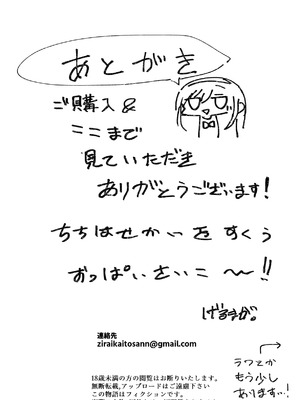 あとがき
ご購入&
ここまで
見ていただき
ありがとうございます!
ちちはせかいをすくう
おっぱいさいこ〜!!
連絡先
ziraikaitosann@gmail.com
18歳未満の方の閲覧はお断りいたします。
無断転載,アップロードはご遠慮下さい
この物語はフィクションです。
ラフとか
もう少し
あります…!